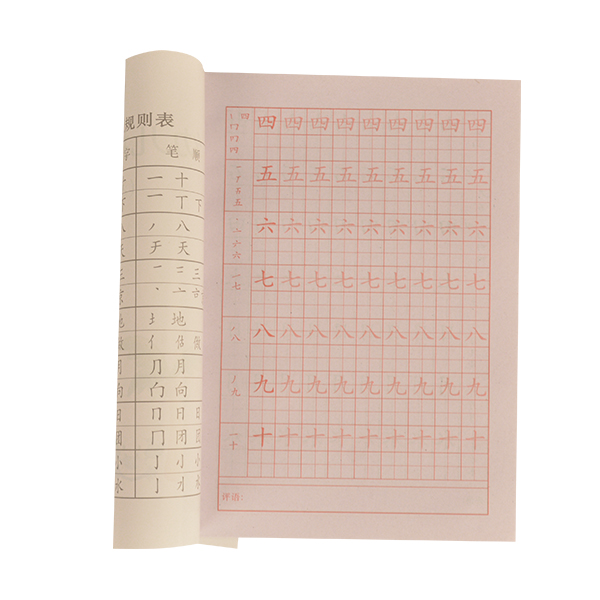 规则表
笔 顺
一 十
一 丅 下
丿 八
天 天
一 二 三
丶 亠 古
地
亻 估 做
月 月
向
冂 日 日
闭 团
亅 小 小
亅 水
四 四 四 四 四 四 四 四 四
五 五 五 五 五 五 五 五 五
六 六 六 六 六 六 六 六 六
一 七 七 七 七 七 七 七 七 七 七
丿 八 八 八 八 八 八 八 八 八 八
丿 九 九 九 九 九 九 九 九 九 九
一 十 十 十 十 十 十 十 十 十 十
评语: